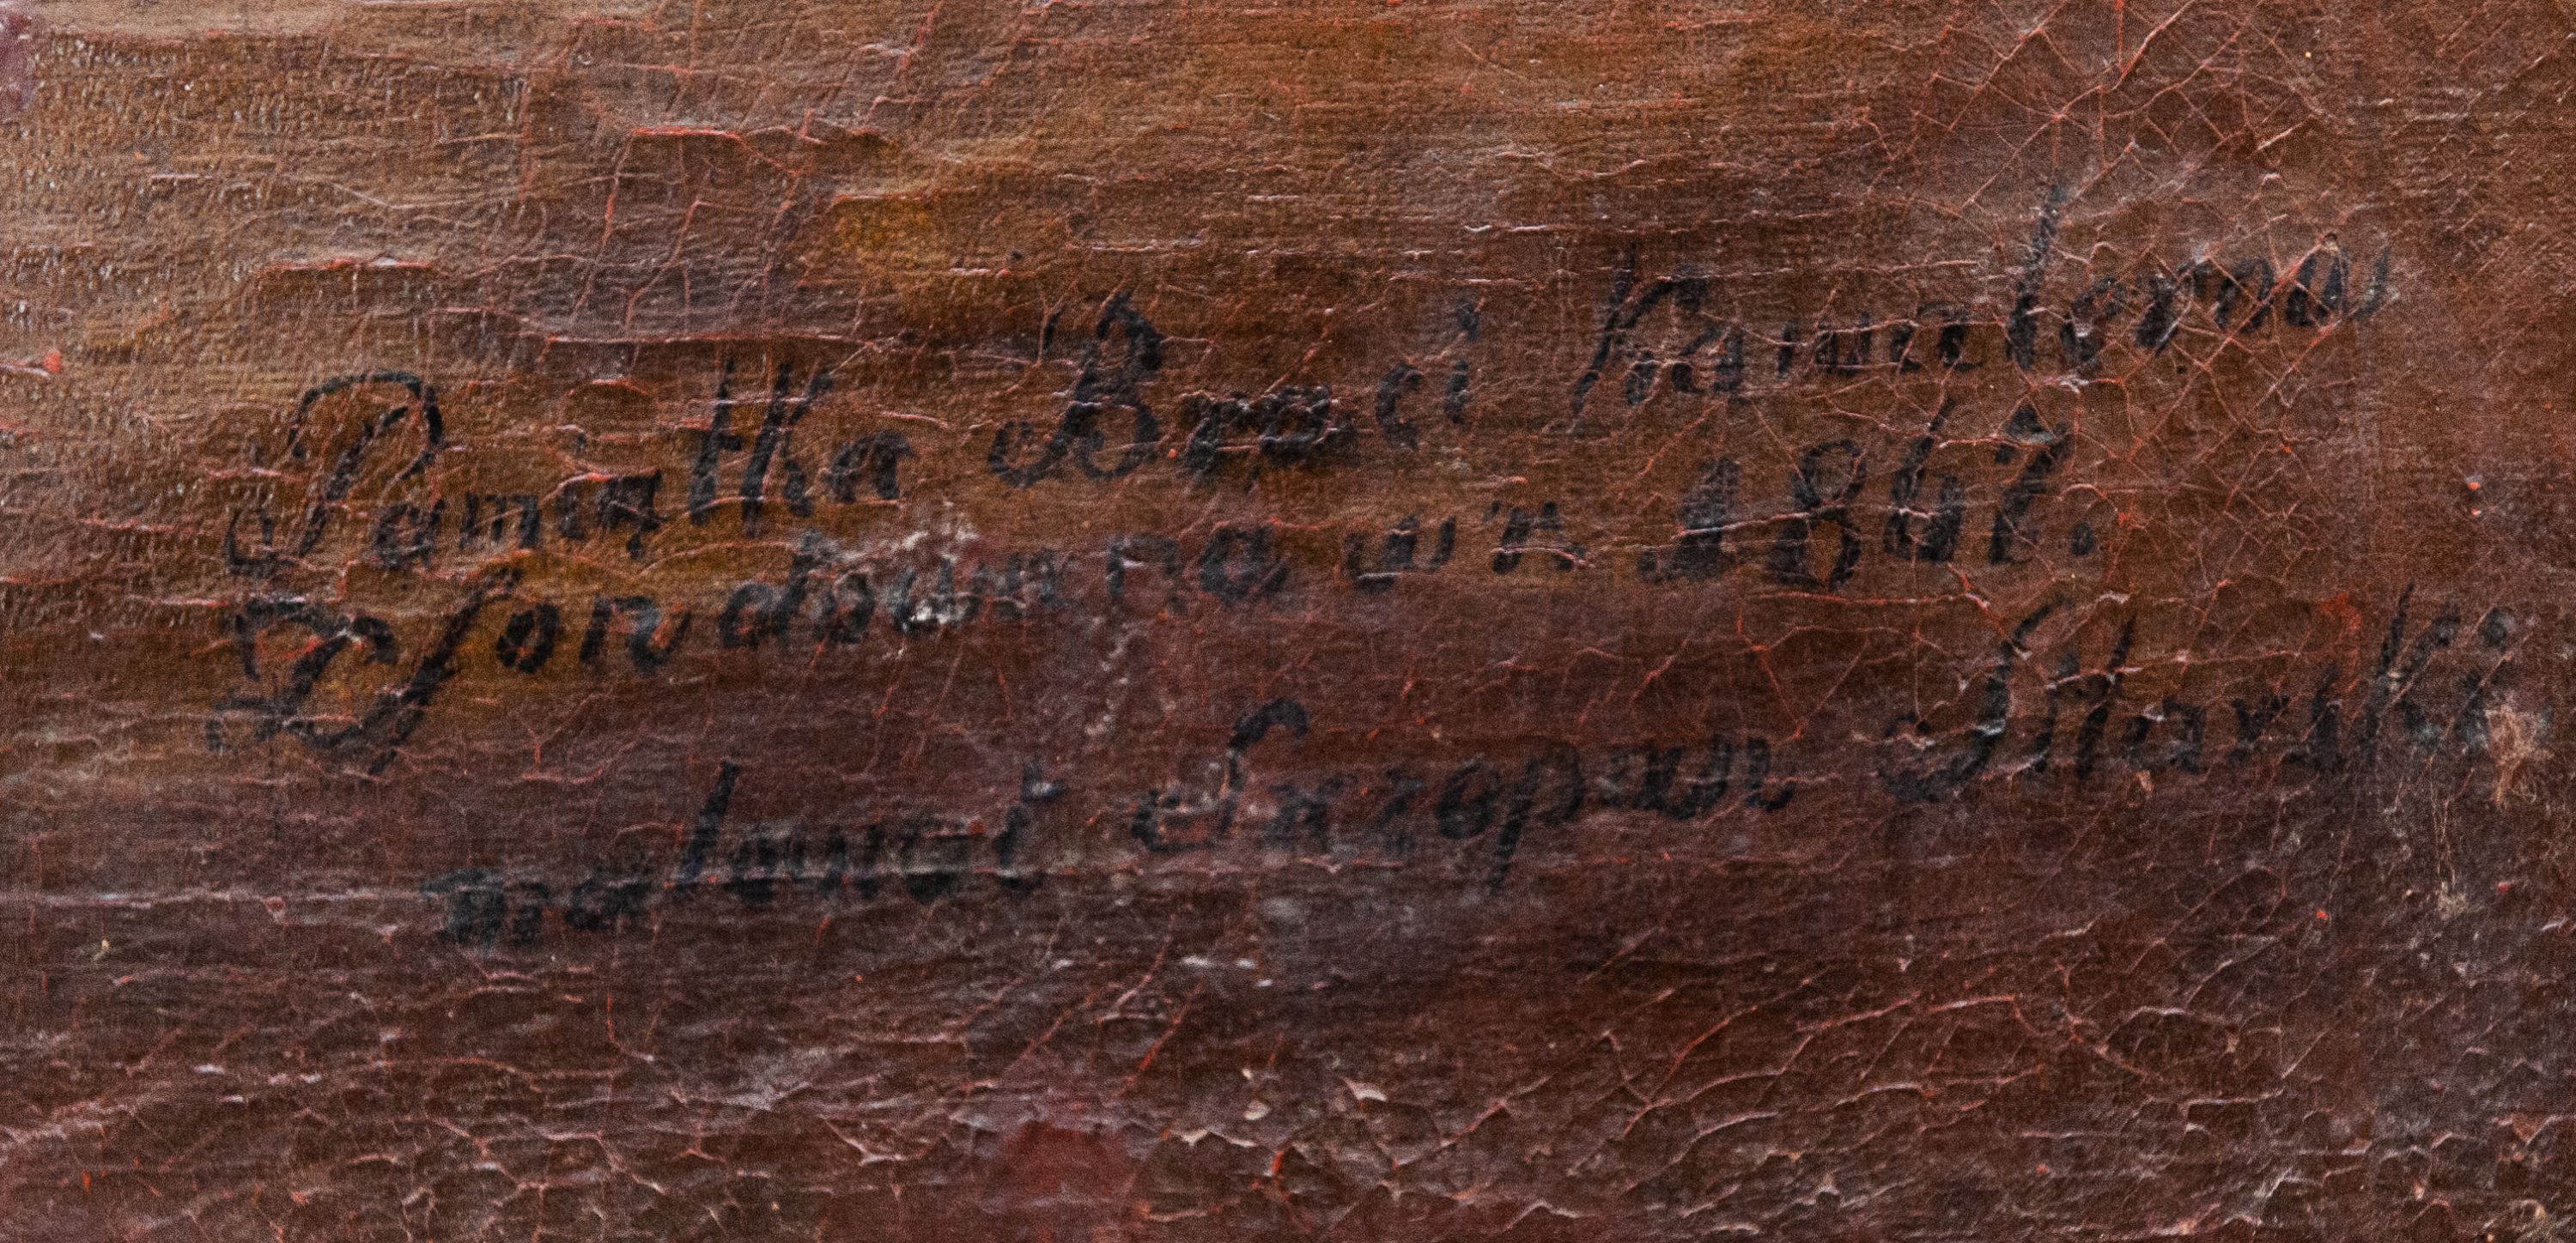 Pamiątka Braci Kawalerow
Zfondowana w r. 1867.
malował Szczepan Sitarski